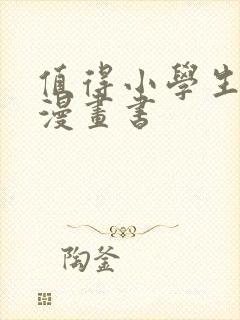 值得小學生
漫畫書
陶釜